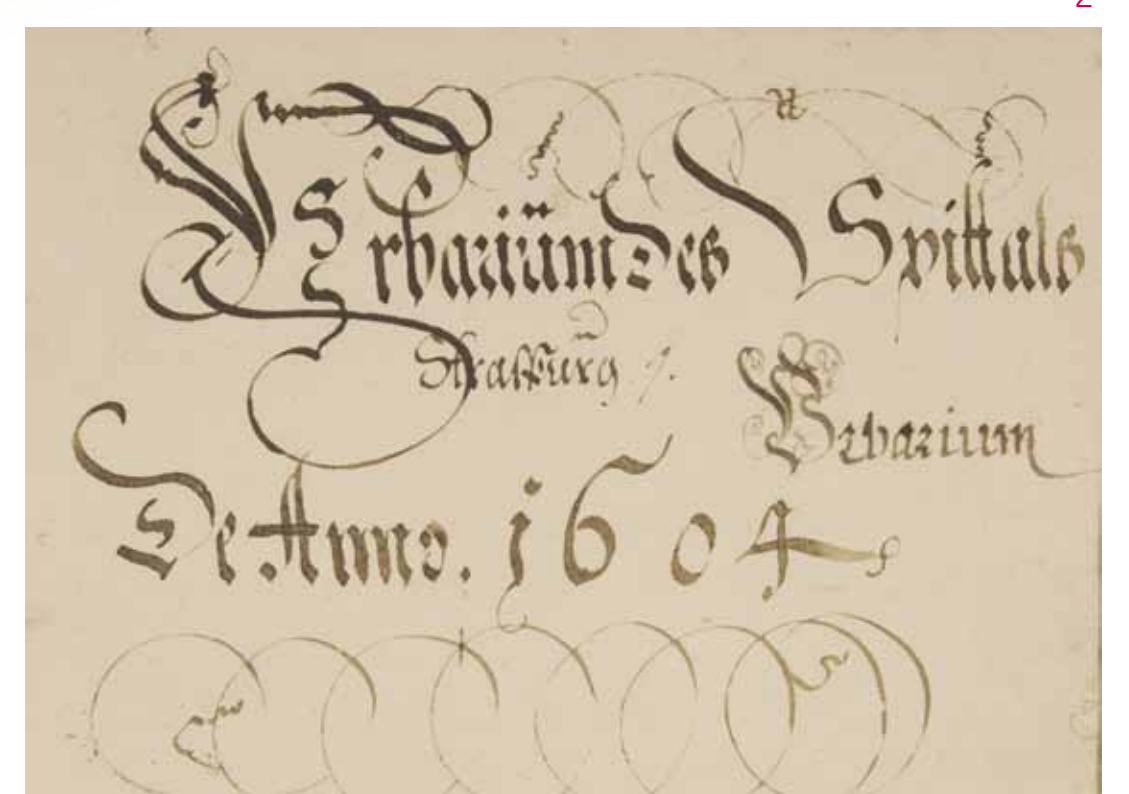 Vrbariüm des Spittals
Strassburg /.
Vrbarium
De Anno. 1604